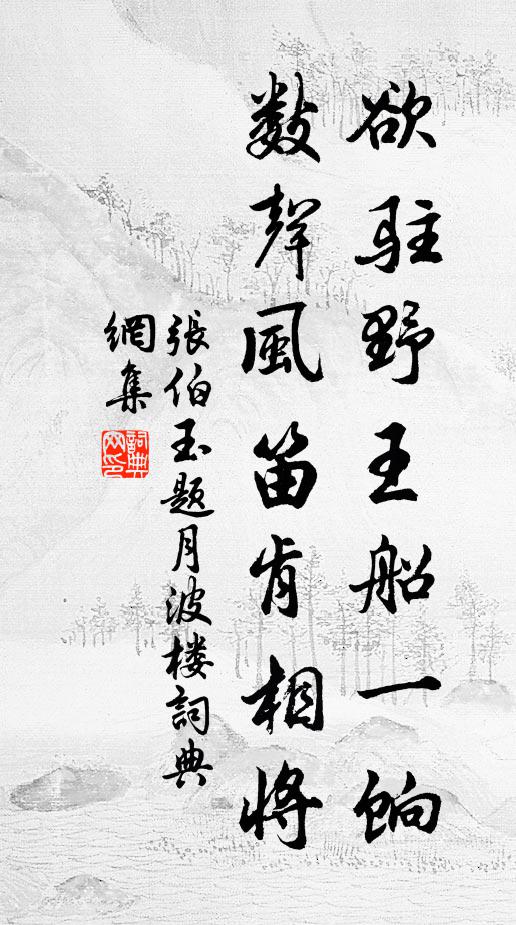 欲駐野王船一餉
數聲風笛肯相將
張伯玉題月波樓詞典
網集
詞典網印